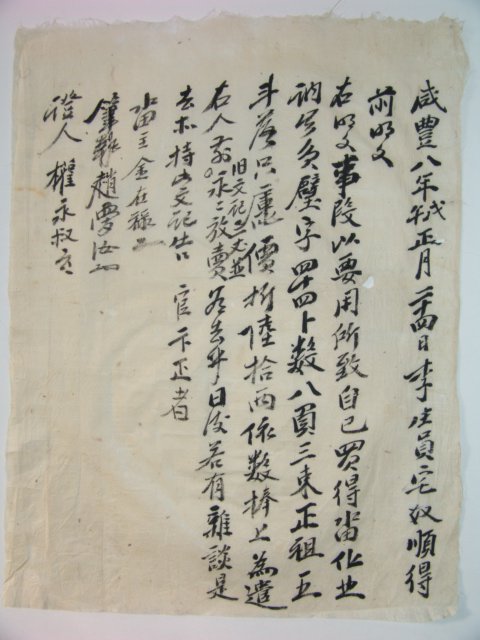 咸豊八年戊午正月二十四日李生員宅奴順得
前明文
右明文事段以要用所致自己買得畓化世
員字四十四卜數八員三束正租五
斗落只廛價折陸拾兩依數捧上為遣
右人前旧文記二丈並永永放賣為去乎日後若有雜談是
去等持此文記告 官卞正者
畓主金在祿
筆執趙
證人權永叔